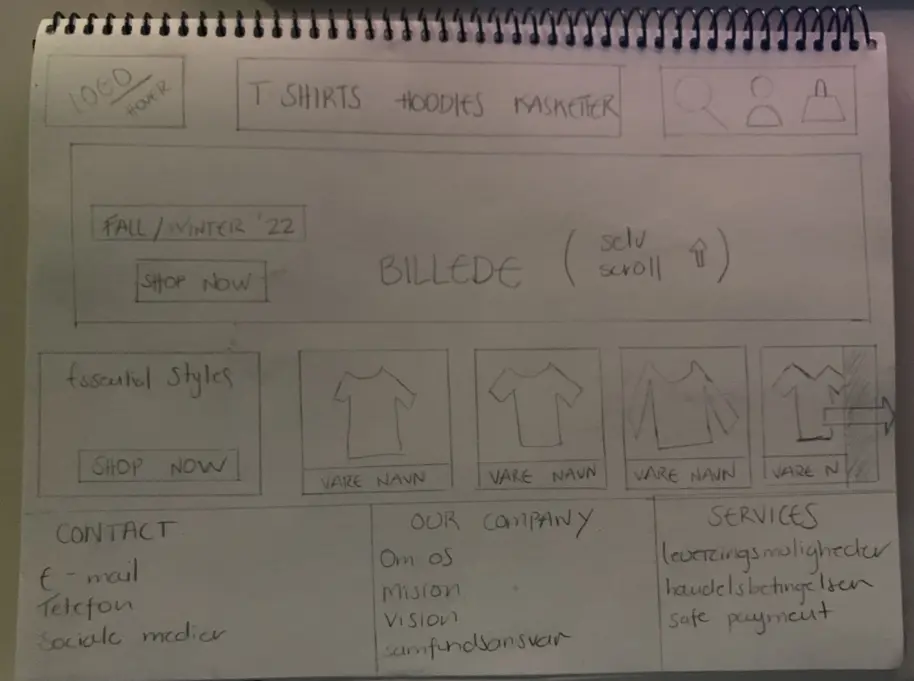 LOGO
HOVER
T SHIRTS HOODIES KASKETTER
FALL/WINTER '22
SHOP NOW
BILLEDE
(selv
scroll)
Essential Styles
SHOP NOW
VARE NAVN
VARE NAVN
VARE NAVN
VARE N
CONTACT
E-mail
Telefon
Sociale medier
OUR COMPANY
Om os
Mision
Vision
samfundsansvar
SERVICES
leveringsmuligheder
handelsbetingelser
safe payment